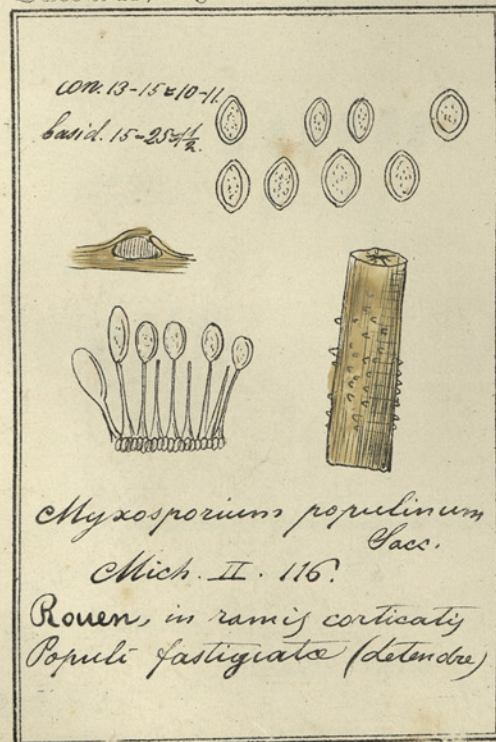 con. 13-15 = 10-11.
basid. 15-25 =
Myxosporium populinum
Sacc.
Mich. II. 116.
Rouen, in ramis corticatis
Populi fastigiatæ (Letendre)